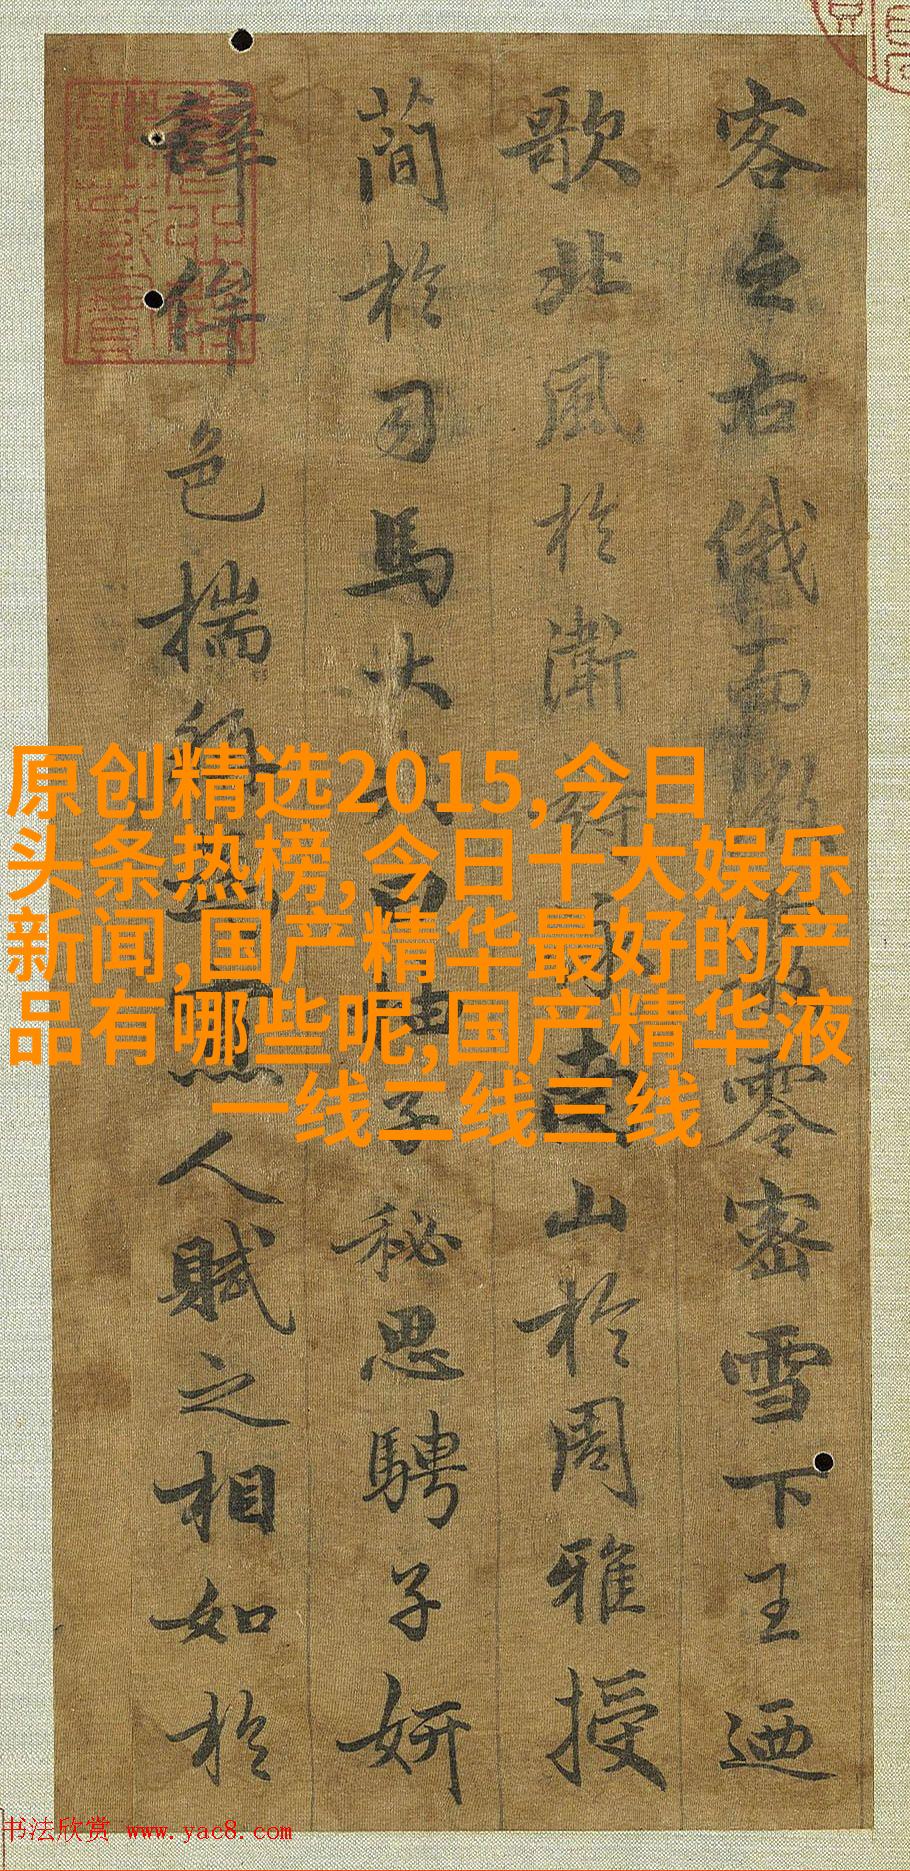 客之右俄而零密雪下王迺
歌北風於衛南山於周雅授
蕳於司馬大夫曰抽子秘思騁子妍
辭侔色揣稱人賦之相如於
原创精选2015,今日
头条热榜,今日十大娱乐
新闻,国产精华最好的产
品有哪些呢,国产精华液
一线二线三线
书法欣赏 www.yac8.com